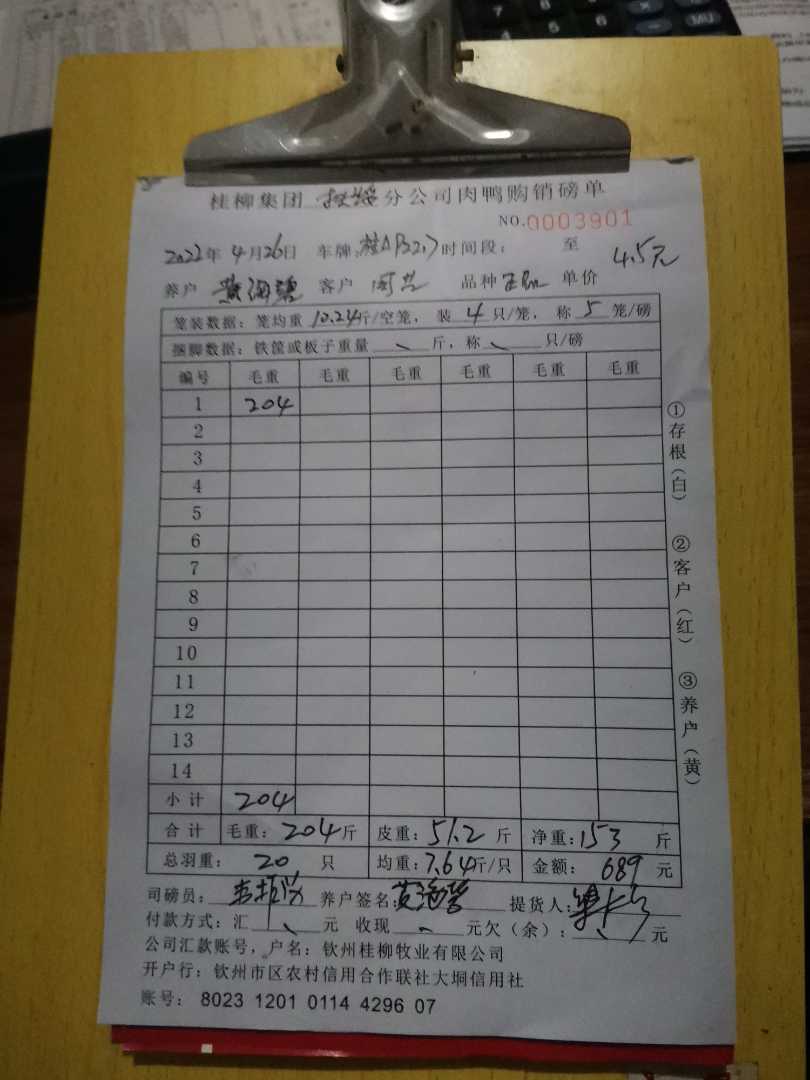 桂柳集团 扶绥分公司肉鸭购销磅单
NO.0003901
2022年4月26日 车牌:桂AB3217 时间段: 至
4.5元
养户 黄海碧 客户 周艺 品种 单价
笼装数据:笼均重10.24斤/空笼,装4只/笼,称5笼/磅
捆脚数据:铁筐或板子重量 、 斤,称 、 只/磅
编号 毛重 毛重 毛重 毛重 毛重 毛重
1 204
2
3
4
5
6
7
8
9
10
11
12
13
14
小计 204
合计 毛重:204斤 皮重:51.2斤 净重:153斤
总羽重:20只 均重:7.64斤/只 金额:689元
司磅员: 养户签名: 提货人:
付款方式:汇 、 元 收现 、 元欠(余): 、 元
公司汇款账号,户名:钦州桂柳牧业有限公司
开户行:钦州市区农村信用合作联社大垌信用社
账号:8023 1201 0114 4296 07
①存根(白)
②客户(红)
③养户(黄)
MU